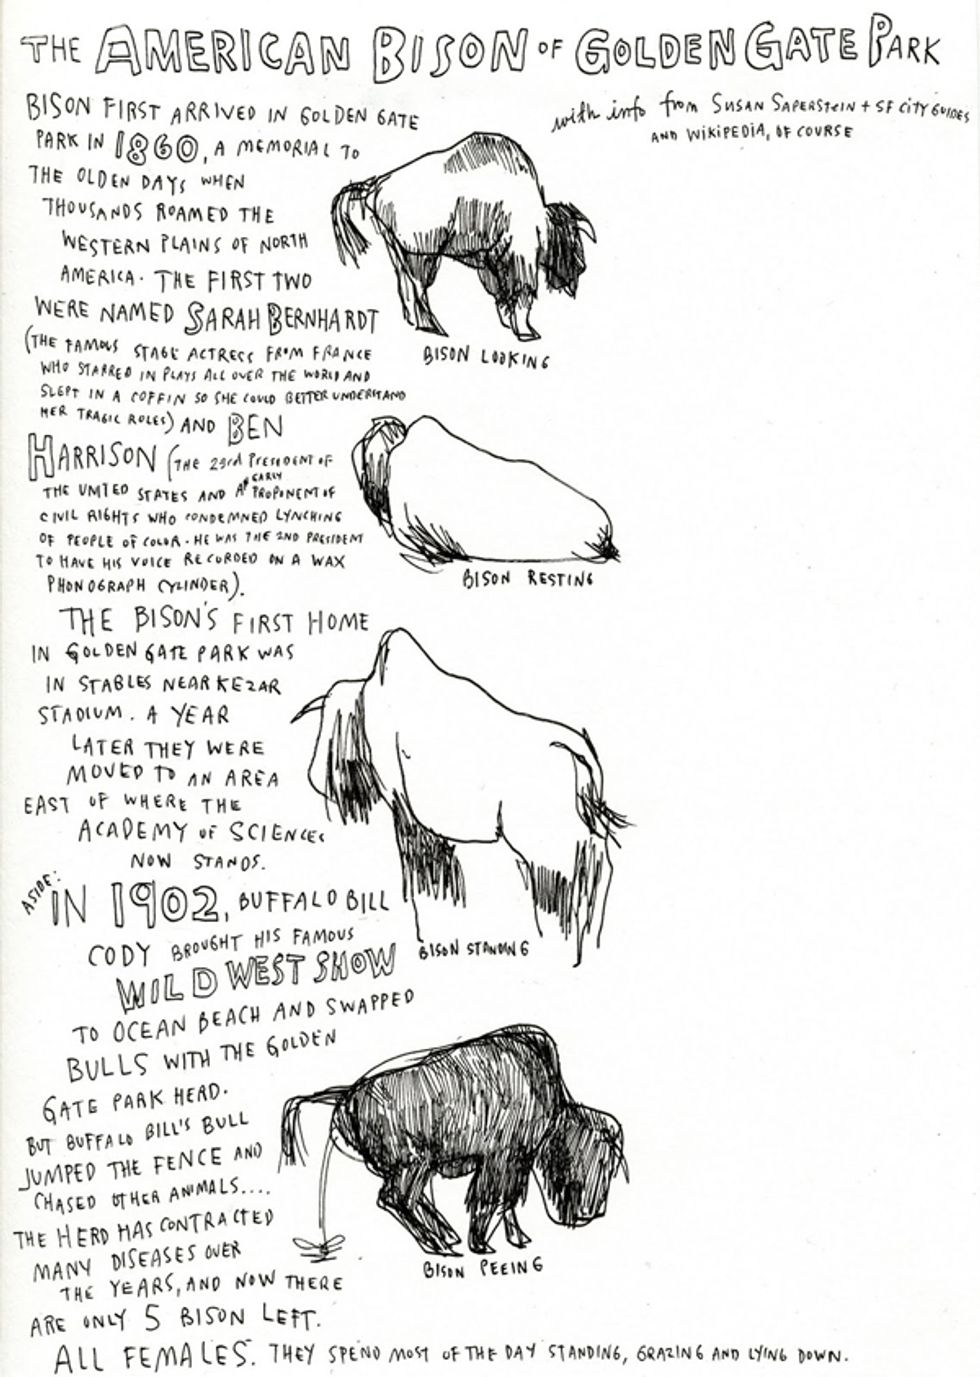 THE AMERICAN BISON OF GOLDEN GATE PARK
with info from SUSAN SAPERSTEIN + SF CITY GUIDES
AND WIKIPEDIA, OF COURSE
BISON FIRST ARRIVED IN GOLDEN GATE
PARK IN 1860, A MEMORIAL TO
THE OLDEN DAYS WHEN
THOUSANDS ROAMED THE
WESTERN PLAINS OF NORTH
AMERICA. THE FIRST TWO
WERE NAMED SARAH BERNHARDT
(THE FAMOUS STAGE ACTRESS FROM FRANCE
WHO STARRED IN PLAYS ALL OVER THE WORLD AND
SLEPT IN A COFFIN SO SHE COULD BETTER UNDERSTAND
HER TRAGIC ROLES) AND BEN
HARRISON (THE 23rd PRESIDENT OF
THE UNITED STATES AND AN EARLY PROPONENT OF
CIVIL RIGHTS WHO CONDEMNED LYNCHING
OF PEOPLE OF COLOR. HE WAS THE 2ND PRESIDENT
TO HAVE HIS VOICE RECORDED ON A WAX
PHONOGRAPH CYLINDER).
THE BISON'S FIRST HOME
IN GOLDEN GATE PARK WAS
IN STABLES NEAR KEZAR
STADIUM. A YEAR
LATER THEY WERE
MOVED TO AN AREA
EAST OF WHERE THE
ACADEMY OF SCIENCES
NOW STANDS.
ASIDE:
IN 1902, BUFFALO BILL
CODY BROUGHT HIS FAMOUS
WILD WEST SHOW
TO OCEAN BEACH AND SWAPPED
BULLS WITH THE GOLDEN
GATE PARK HERD.
BUT BUFFALO BILL'S BULL
JUMPED THE FENCE AND
CHASED OTHER ANIMALS....
THE HERD HAS CONTRACTED
MANY DISEASES OVER
THE YEARS, AND NOW THERE
ARE ONLY 5 BISON LEFT.
ALL FEMALES. THEY SPEND MOST OF THE DAY STANDING, GRAZING AND LYING DOWN.
BISON LOOKING
BISON RESTING
BISON STANDING
BISON PEEING